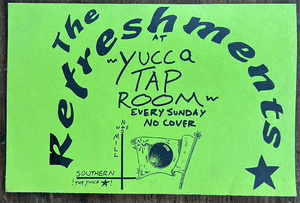 The Refreshments
AT
~YUCCA
TAP
ROOM~
EVERY SUNDAY
NO COVER
N
MILL
SOUTHERN